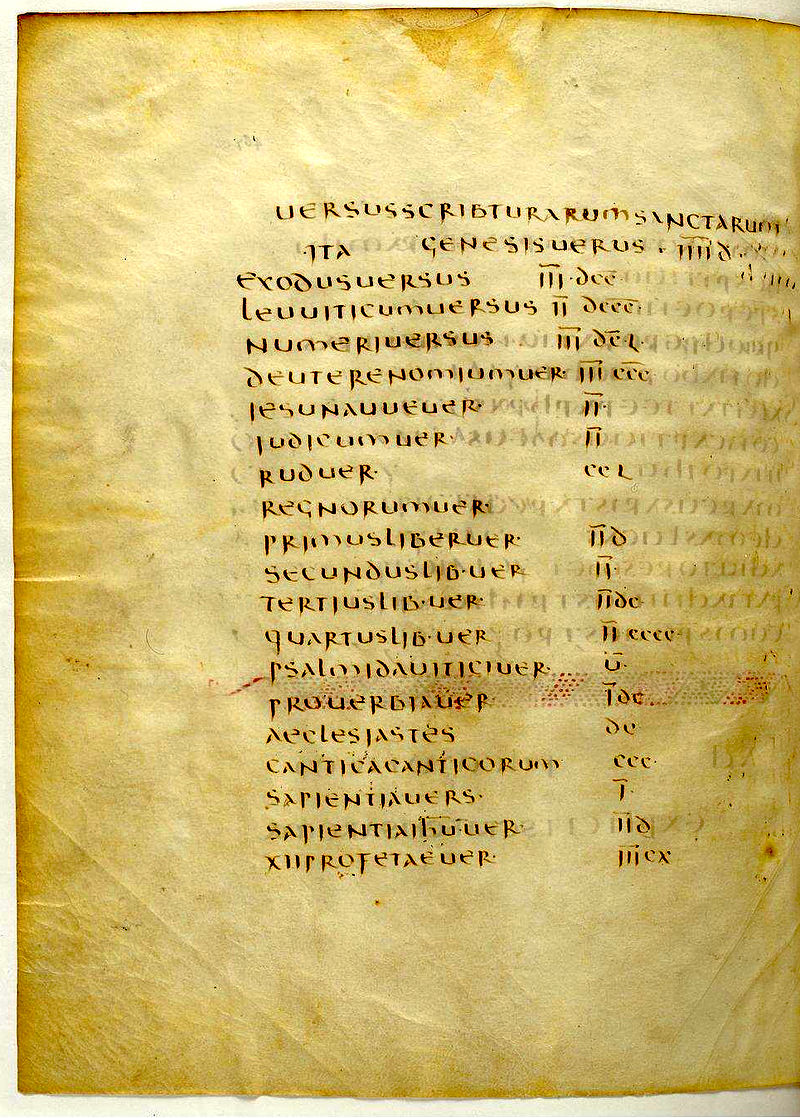 uersus scribturarum sanctarum
ita genesis uerus · ĪĪĪĪd·
exodus uersus ĪĪĪ·dcc
leuuiticum uersus ĪĪ dccc·
numeri uersus ĪĪĪ dcL·
deuterenomium uer· ĪĪĪ ccc
iesu nauue uer· ĪĪ·
iudicum uer· ĪĪ
rud uer· ccL
regnorum uer·
primus liber uer· ĪĪd
secundus lib· uer ĪĪ·
tertius lib· uer· ĪĪdc
quartus lib· uer ĪĪcccc·
psalmi dauitici uer· ū·
prouerbia uer· Īdc
aeclesiastes dc
cantica canticorum ccc·
sapientia uers· Ī·
sapientia ih̅u̅· uer· ĪĪd
xii profetae uer· ĪĪĪcx